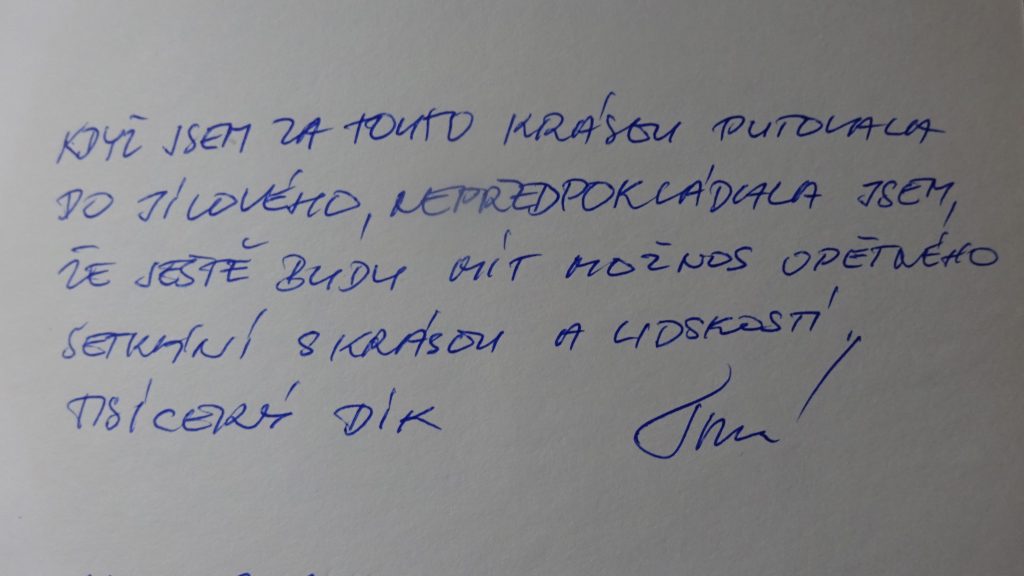 KDYŽ JSEM ZA TOUTO KRÁSOU PUTOVALA
DO JÍLOVÉHO, NEPŘEDPOKLÁDALA JSEM,
ŽE JEŠTĚ BUDU MÍT MOŽNOS OPĚTNÉHO
SETKÁNÍ S KRÁSOU A LIDSKOSTÍ.
TISÍCERÝ DÍK